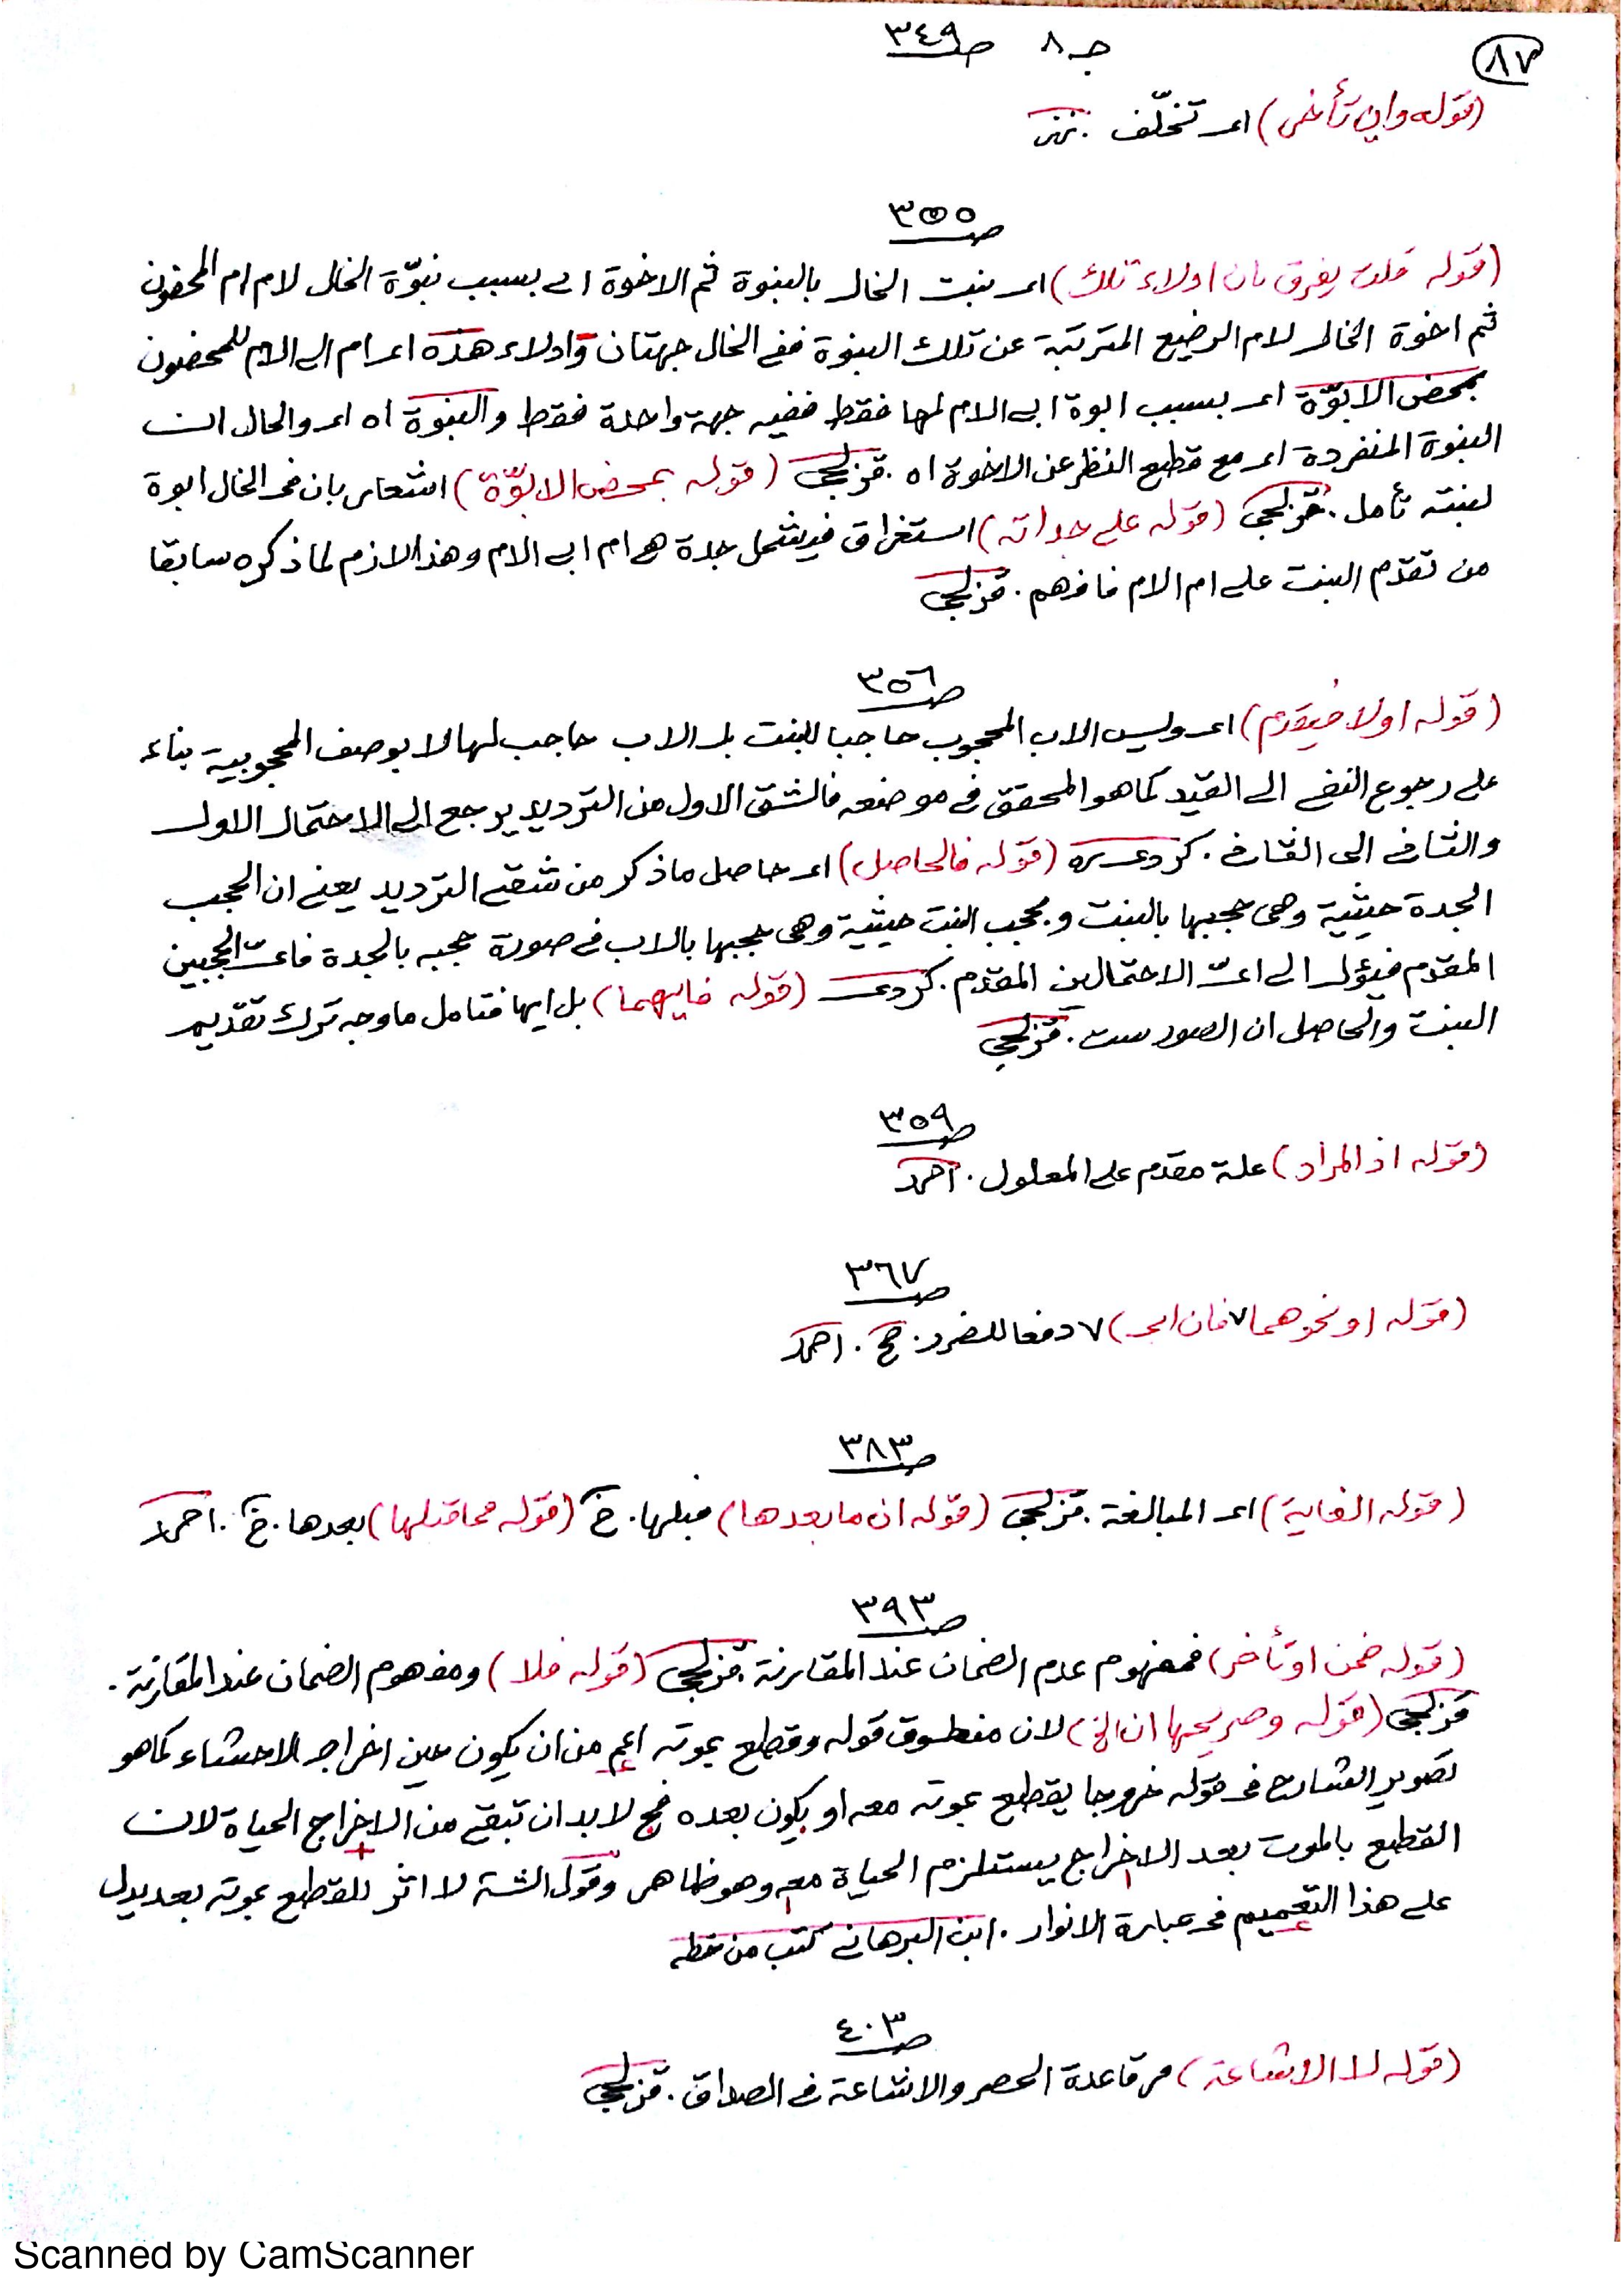 ٨٧
جـ ٨ صـ ٣٤٩
(قوله وان تأخر) اى تخلّف .
صـ ٣٥٥
(قوله قلت يفرق بان ادلاء تلك) اى بنت الخال بالبنوة ثم الاخوة اى بسبب نبوّة الخال لام ام المحضون
ثم اخوة الخال لام الرضيع المترتبة عن تلك البنوة ففى الخال جهتان وادلاء هذه اى ام ابى الام للمحضون
بمحض الابوّة اى بسبب ابوة ابى الام لها فقط ففيه جهة واحدة فقط والبنوة اه اى والحال ان
البنوة المنفردة اى مع قطع النظر عن الاخوة اه . قزلجى (قوله بمحض الابوّة) اشعار بان فى الخال ابوة
لبنته تأمل . قزلجى (قوله على جداته) استغراق فيشمل جدة هى ام ابى الام وهذا لازم لما ذكره سابقا
من تقدّم البنت على ام الام فافهم . قزلجى
صـ ٣٥٦
(قوله اولا فيقدم) اى وليس الاب المحجوب حاجبا للبنت بل الاب حاجب لها لا بوصف المحجوبية بناء
على رجوع النفى الى القيد كما هو المحقق فى موضعه فالشق الاول من الترديد يرجع الى الاحتمال الاول
والثانى الى الثانى . كردى (قوله فالحاصل) اى حاصل ما ذكر من شقى الترديد يعنى ان الحجب
الجدة حيثية وهى حجبها بالبنت وبحجب البنت حيثية وهى حجبها بالاب فى صورة حجبه بالجدة فاىّ الحجبين
المقدم فيؤل الى اىّ الاحتمالين المقدم . كردى (قوله فايهما) بل ايها فتامل ما وجه ترك تقديم
البنت والحاصل ان الصور ست . قزلجى
صـ ٣٥٩
(قوله اذ المراد) علة مقدم على المعلول . احمد
صـ ٣٦٧
(قوله او نحوهما ٧ فان ابى) ٧ دفعا للضرر . حج . احمد
صـ ٣٨٣
(قوله الغاية) اى المبالغة . قزلجى (قوله ان ما بعدها) قبلها . خ (قوله مما قبلها) بعدها . خ . احمد
صـ ٣٩٣
(قوله ضمن او تأخر) فمفهوم عدم الضمان عند المقارنة . قزلجى (قوله فلا) ومفهوم الضمان عند المقارنة .
قزلجى (قوله وصريحها ان الخ) لان منطوق قوله وقطع بموته اعم من ان يكون عين اخراج الاحشاء كما هو
تصوير الشارح فى قوله خروجا يقطع بموته معه او يكون بعده فح لا بد ان تبقى من الاخراج الحياة لان
القطع بالموت بعد الاخراج يستلزم الحياة معه وهو ظاهر وقول الشـ لا اثر للقطع بموته بعد يدل
على هذا التعميم فى عبارة الانوار . ابن البرهانى كتب من خطه
صـ ٤٠٣
(قوله لا الاشاعة) مر قاعدة الحصر والاشاعة فى الصداق . قزلجى
Scanned by CamScanner